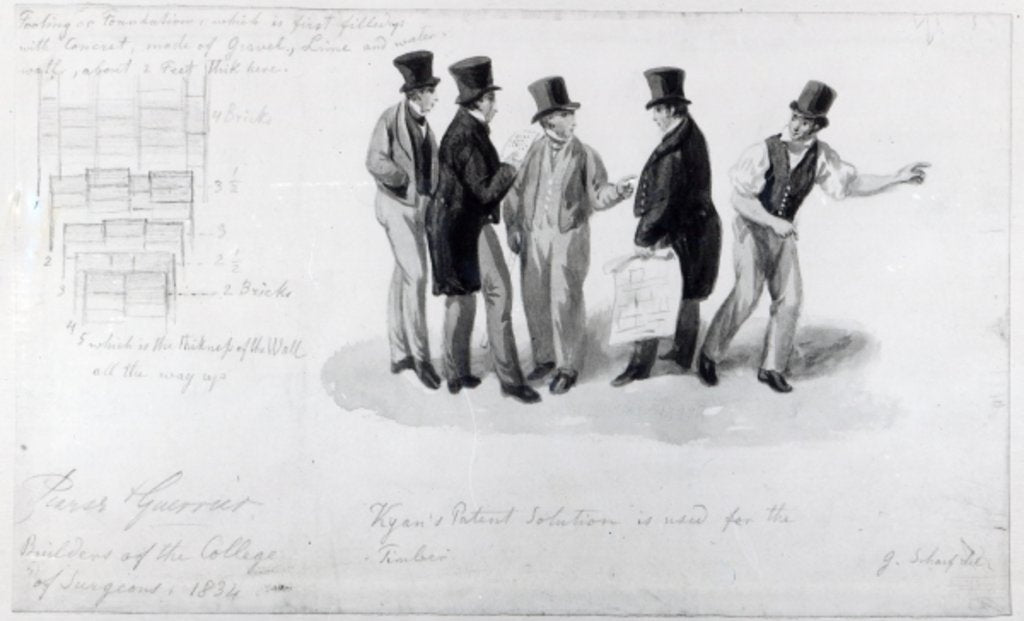 Footing or Foundation, which is first filled up
with Concret, made of Gravel, Lime and water
about 2 Feet thick here.
4 Bricks
3 ½
3
2
2 ½
3
2 Bricks
4
5 which is the Thickness of the Wall
all the way up
& Guerrier
Builders of the College
of Surgeons, 1834
Kyan's Patent Solution is used for the
Timber
G. Scharf del.